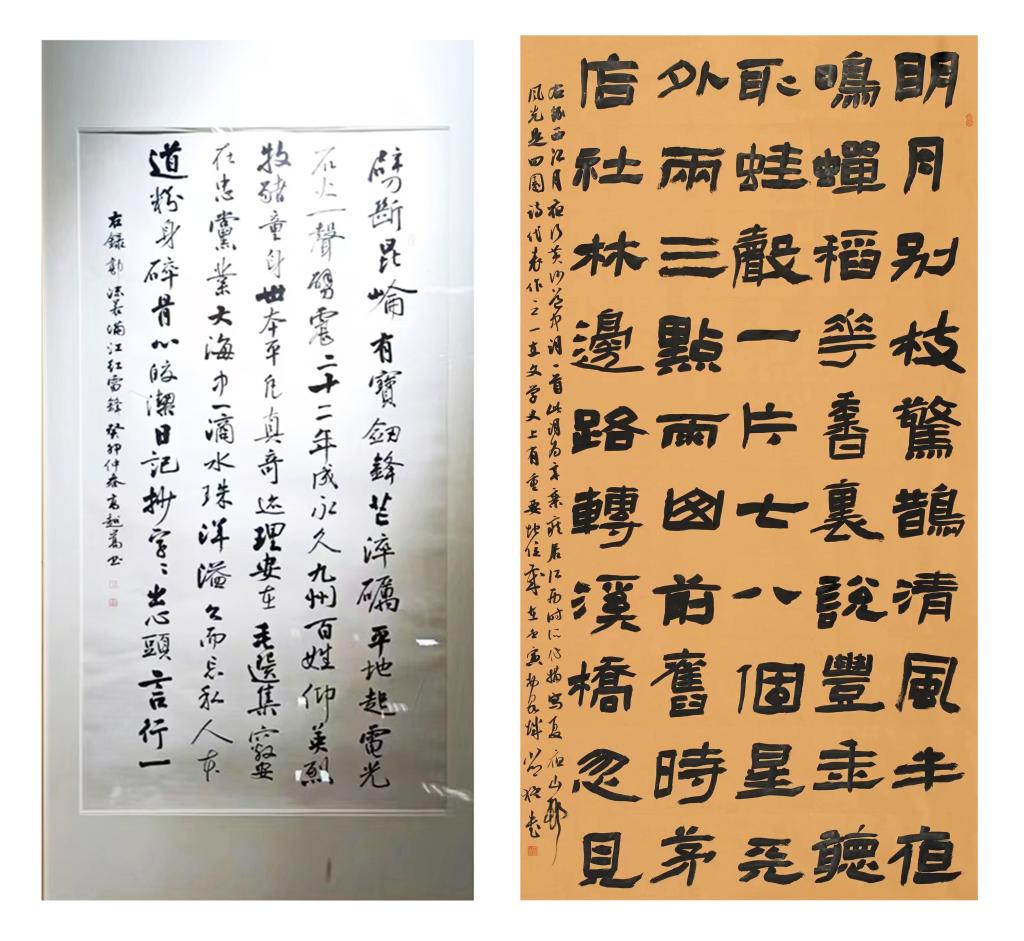 劈斷昆崙有寶劍鋒芒淬礪平地起電光
石火一聲劈震二十二年成永久九州百姓仰英烈
牧豬童身世本平凡真奇迹理安在毛選集
在忠黨業大海中一滴水珠洋溢公而忘私人本
道粉身碎骨心皎潔日記抄字〻出心頭言行一
右錄郭沫若滿江紅雷鋒癸卯仲春高越萬書
明月别枝驚鵲清風半夜
鳴蟬稻花香裏說豐年聽
取蛙聲一片七八個星天
外兩三點雨山前舊時茅
店社林邊路轉溪橋忽見
右錄西江月夜行黃沙道中詞一首此詞為辛棄疾居江西時所作描寫夏夜山邨
風光是田園詩代表作之一在文学史上有重要地位歲在壬寅